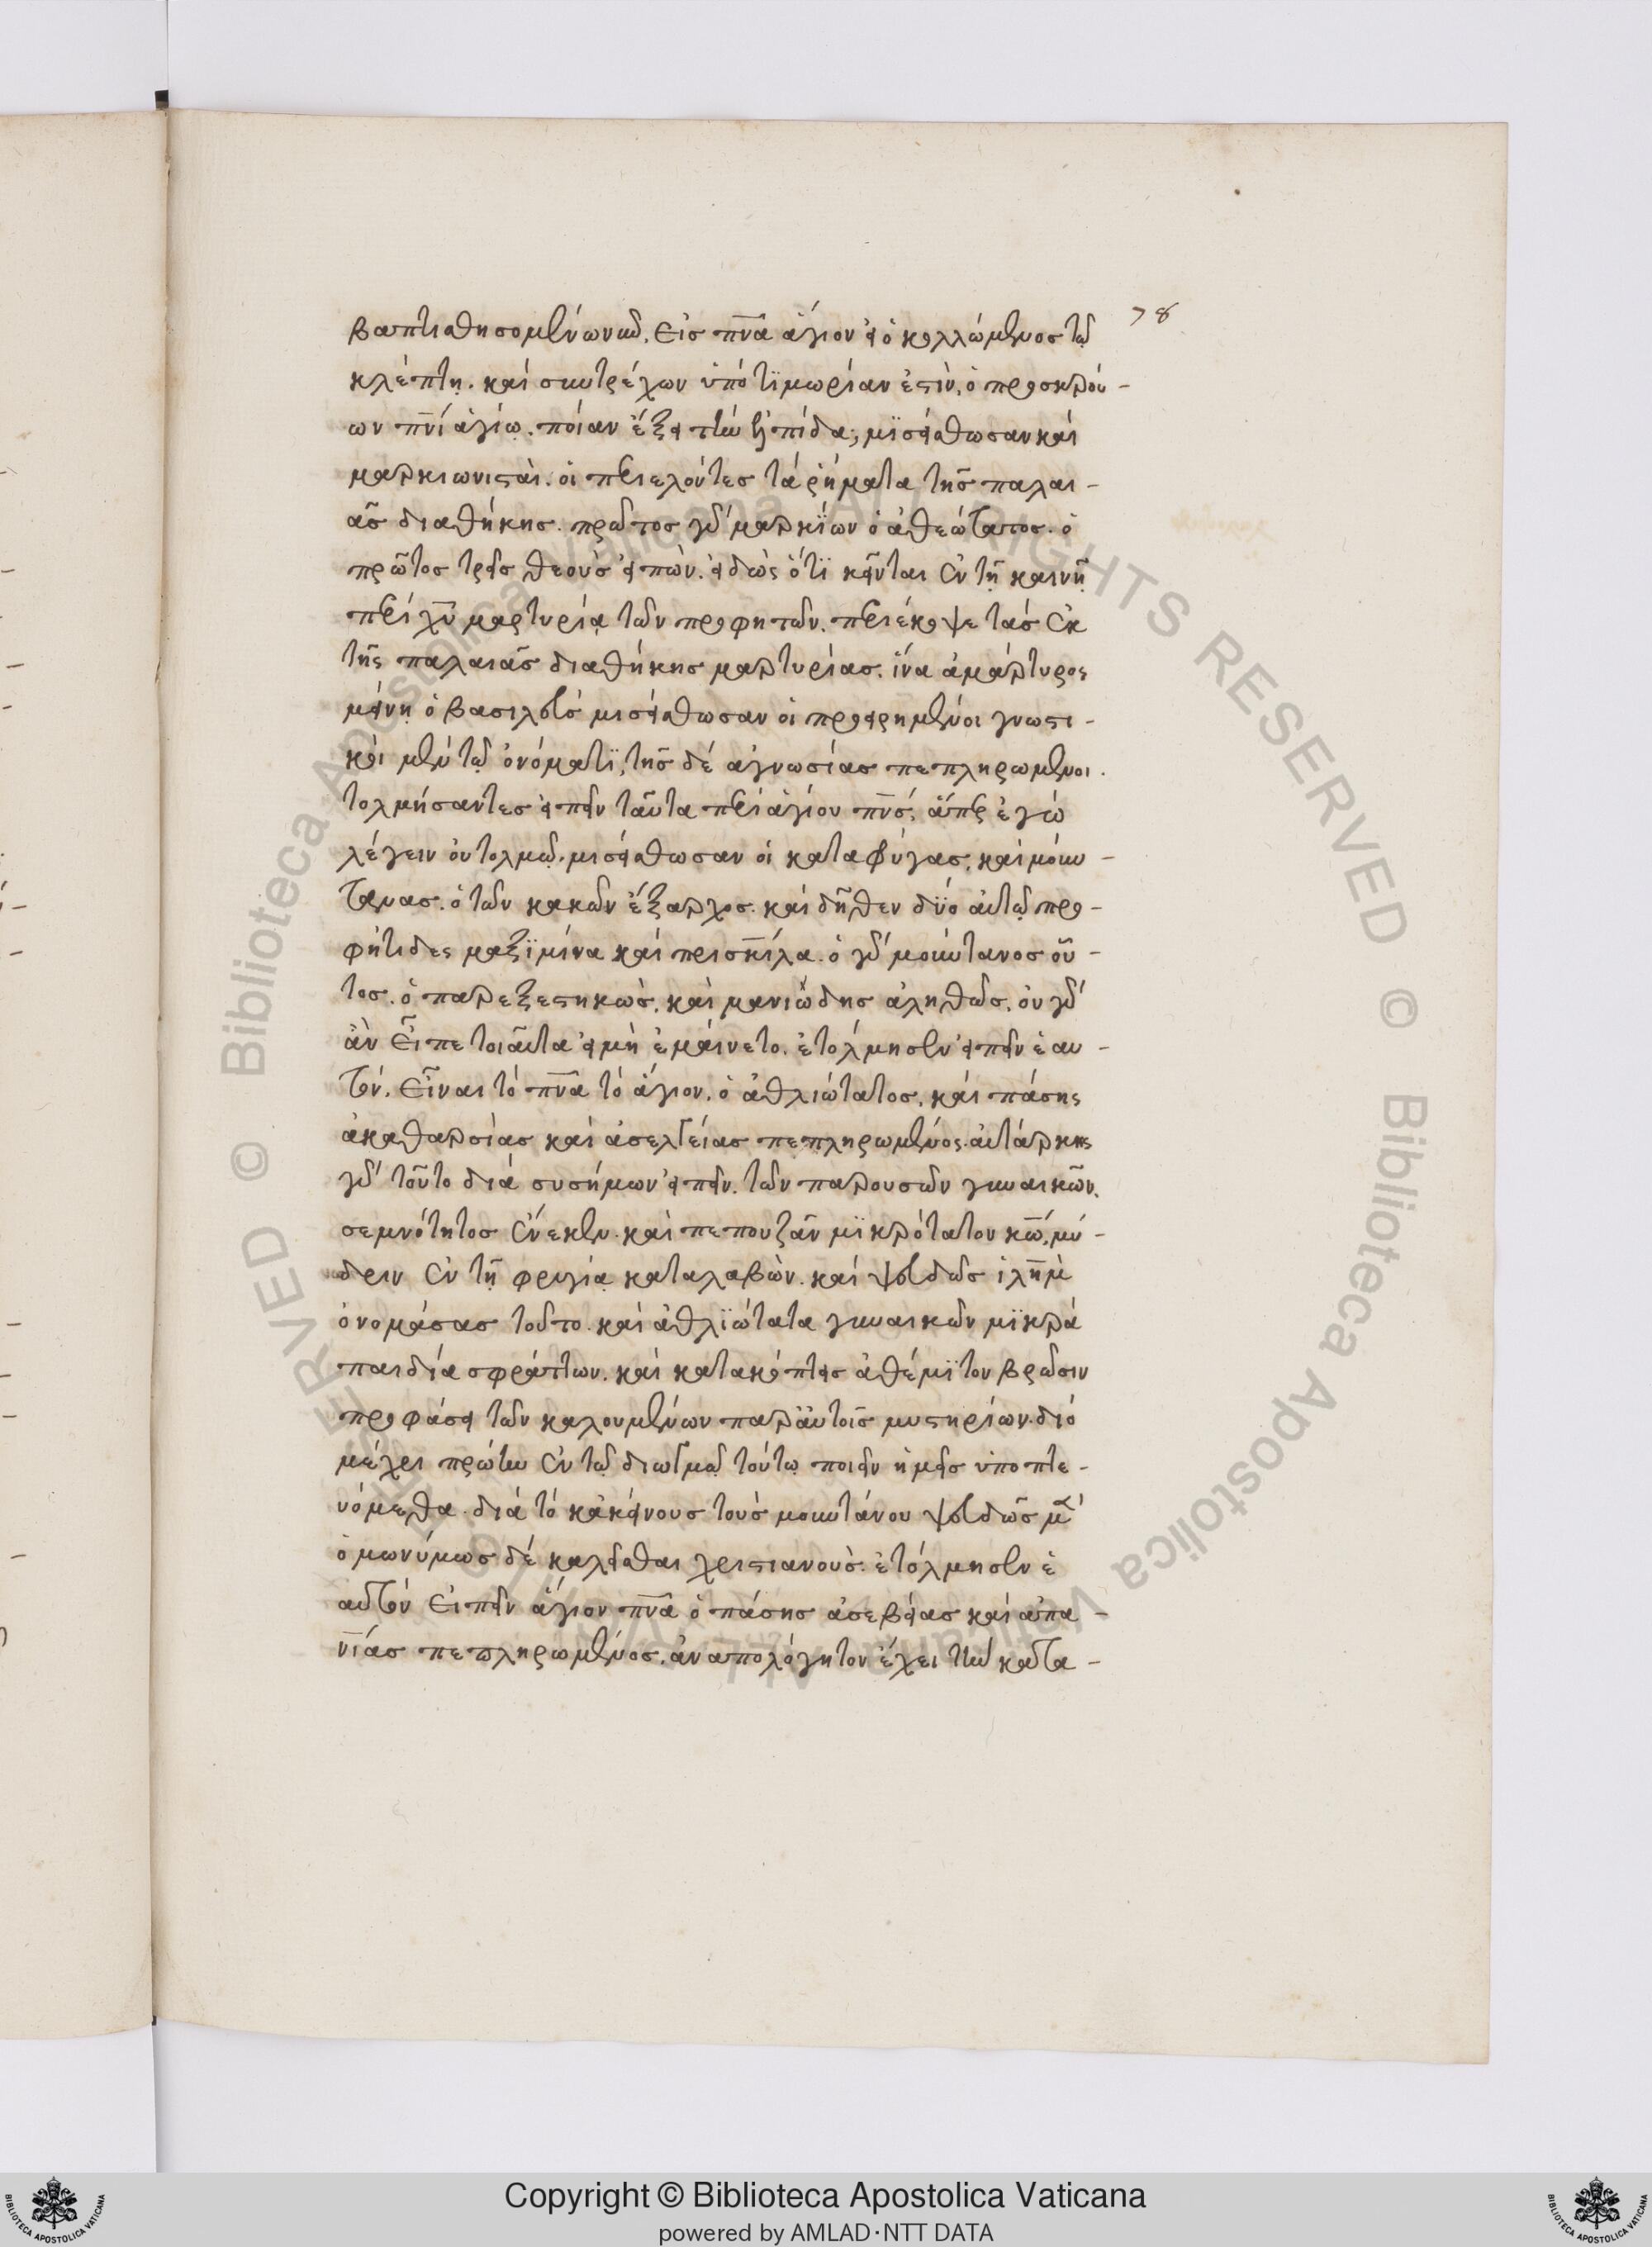 78
βαπτισθησομένων ὧδε. εἰς πνα ἅγιον εἰ ὁ κολλώμενος τῷ
κλέπτῃ. καὶ συντρέχων ὑπὸ τϊμωρίαν ἐστὶν, ὁ προσκρού-
ων πνὶ ἁγίῳ. ποίαν ἕξει τὴν ἐλπίδα; μϊσείσθωσαν καὶ
μαρκιωνισταὶ. οἱ περιελόντες τὰ ῥήματα τῆς παλαι-
ᾶς διαθήκης. πρῶτος γὰρ μαρκΐων ὁ ἀθεώτατος. ὁ
πρῶτος τρεῖς θεοὺς εἰπὼν. εἰδὼς ὅτϊ κεῖνται ἐν τῇ καινῇ
περὶ χυ μαρτυρία τῶν προφητῶν. περιέκοψε τὰς ἐκ
τῆς παλαιᾶς διαθήκης μαρτυρίας. ἵνα ἀμάρτυρος
μείνῃ ὁ βασιλεὺς μισείσθωσαν οἱ προειρημένοι γνωστι-
κοὶ μὲν τῷ ὀνόματϊ, τῆς δὲ ἀγνωσίας πεπληρωμένοι.
τολμήσαντες εἰπεῖν ταῦτα περὶ ἁγίου πνς, ἅπερ ἐγὼ
λέγειν οὐ τολμῶ. μισείσθωσαν οἱ καταφύγας. καὶ μόυν-
τανας. ὁ τῶν κακῶν ἔξαρχος. καὶ δῆθεν δύο αὐτῷ προ-
φήτιδες μαξϊμίνα καὶ πρισκίλα. ὁ γὰρ μουντανος οὗ-
τος. ὁ παρεξεστηκὼς. καὶ μανιώδης ἀληθῶς. οὐ γὰρ
ἂν εἶπε τοιαῦτα εἰ μὴ ἐμαίνετο. ἐτόλμησεν εἰπεῖν ἑαυ-
τὸν. εἶναι τὸ πνα τὸ ἅγιον. ὁ ἀθλιώτατος. καὶ πάσης
ἀκαθαρσίας καὶ ἀσελγείας πεπληρωμένος. αὐτάρκης
γὰρ τοῦτο διὰ συσήμων εἰπεῖν. τῶν παρουσῶν γυναικῶν.
σεμνότητος ἕνεκεν. καὶ πεπουζᾶν μϊκρότατον κω, μύ-
δριν ἐν τῇ φρυγίᾳ καταλαβὼν. καὶ ψευδῶς ἱλημ
ὀνομάσας τοῦτο. καὶ ἀθλϊώτατα γυναικῶν μϊκρὰ
παιδία σφάττων. καὶ κατακόπτεις ἀθέμϊτον βρῶσιν
προφάσει τῶν καλουμένων παρ' ἀυτοῖς μυστηρίων. διὸ
μέχρι πρώτην ἐν τῷ διωγμῷ τούτῳ ποιεῖν ἡμεῖς ὑποπτε-
υόμεθα. διὰ τὸ κἀκείνους τοὺς μουντάνου ψευδῶς μὲν
ὁμωνύμως δὲ καλεῖσθαι χριστιανοὺς. ἐτόλμησεν ἑ
αυτὸν εἰπεῖν ἅγιον πνα ὁ πάσης ἀσεβείας καὶ ἀπα-
νίας πεπληρωμένος. ἀναπολόγητον ἔχει τὴν κατα-